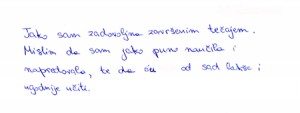 Jako sam zadovoljna završenim tečajem.
Mislim da sam jako puno naučila i
napredovala, te da ću od sad lakše i
ugodnije učiti.